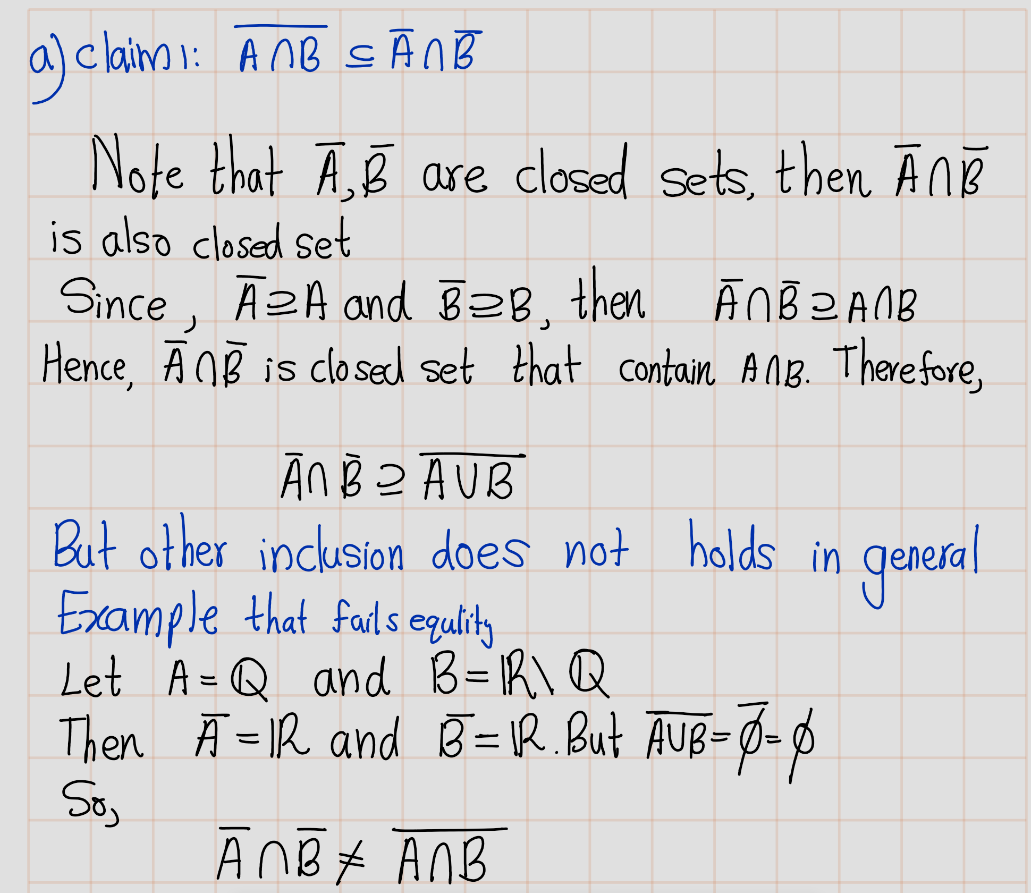 a) claim 1: $\overline{A \cap B} \subseteq \bar{A} \cap \bar{B}$
Note that $\bar{A}, \bar{B}$ are closed sets, then $\bar{A} \cap \bar{B}$
is also closed set
Since, $\bar{A} \supseteq A$ and $\bar{B} \supseteq B$, then $\bar{A} \cap \bar{B} \supseteq A \cap B$
Hence, $\bar{A} \cap \bar{B}$ is closed set that contain $A \cap B$. Therefore,
$\bar{A} \cap \bar{B} \supseteq \overline{A \cup B}$
But other inclusion does not holds in general
Example that fails equlity
Let $A = \mathbb{Q}$ and $B = \mathbb{R} \setminus \mathbb{Q}$
Then $\bar{A} = \mathbb{R}$ and $\bar{B} = \mathbb{R}$. But $\overline{A \cup B} = \overline{\phi} = \phi$
So,
$\bar{A} \cap \bar{B} \neq \overline{A \cap B}$